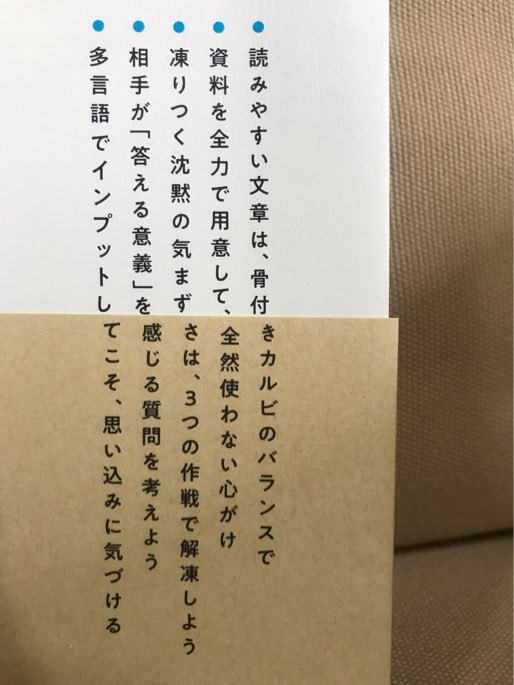 ● 読みやすい文章は、骨付きカルビのバランスで
● 資料を全力で用意して、全然使わない心がけ
● 凍りつく沈黙の気まずさは、3つの作戦で解凍しよう
● 相手が「答える意義」を感じる質問を考えよう
● 多言語でインプットしてこそ、思い込みに気づける